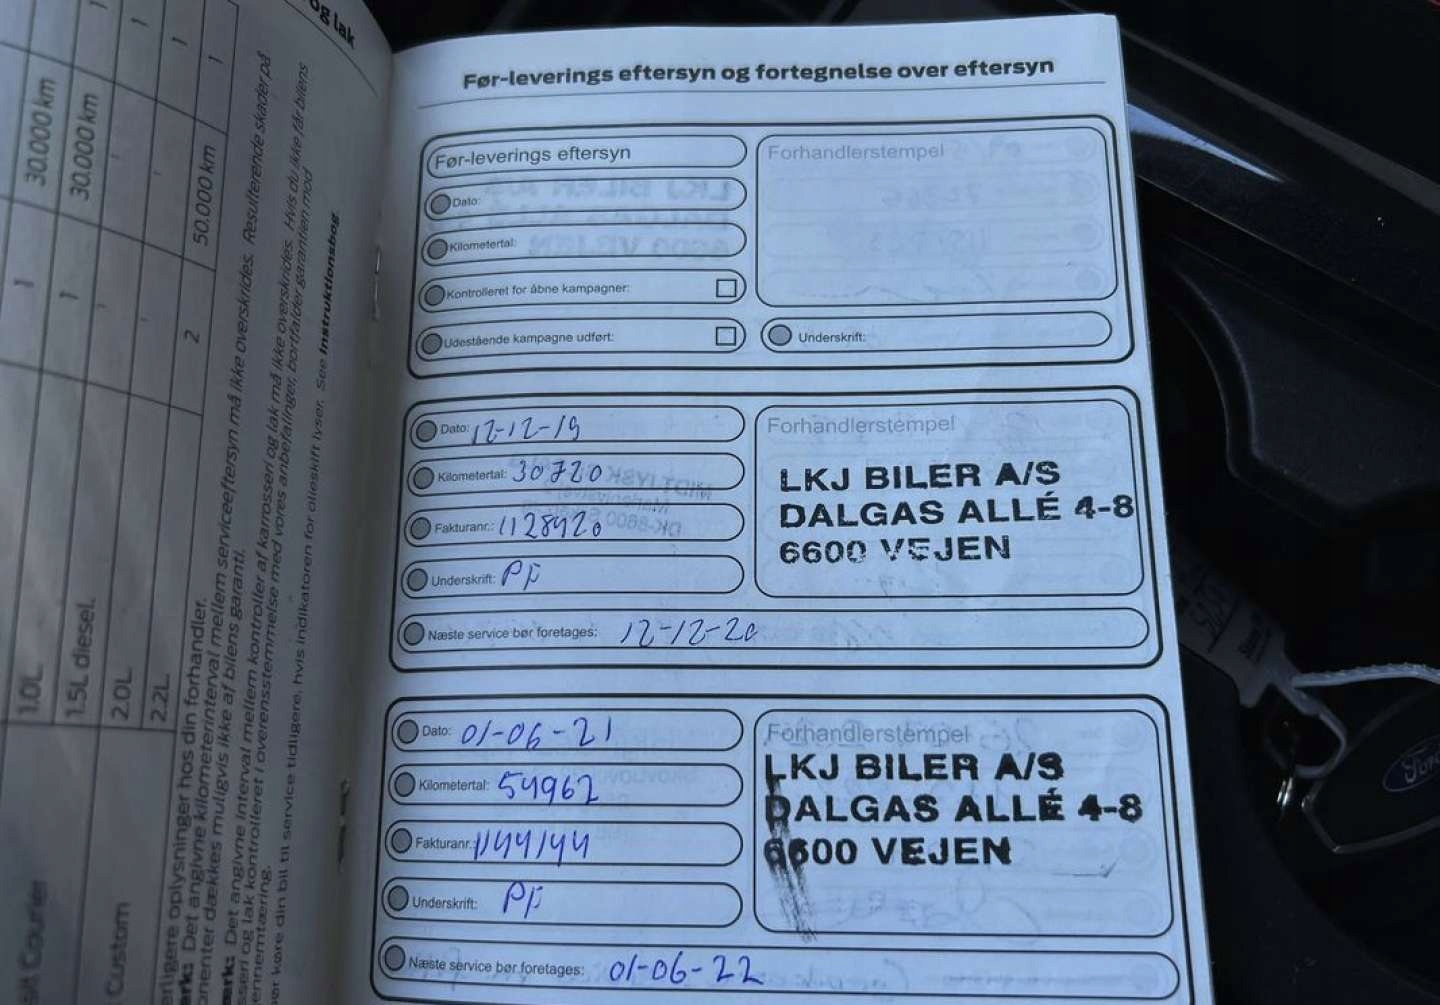 og lak
1
1
1
1
30.000 km
30.000 km
50.000 km
1
1
2
1.0L
1.5L diesel.
2.0L
2.2L
Courier
Custom
oplysninger hos din forhandler.
Det angivne kilometerinterval mellem serviceeftersyn må ikke overskrides. Resulterende skader på
dækkes muligvis ikke af bilens garanti.
Det angivne interval mellem kontroller af karrosseri og lak må ikke overskrides. Hvis du ikke får bilens
og lak kontrolleret i overensstemmelse med vores anbefalinger, bortfalder garantien mod
gennemtæring.
køre din bil til service tidligere, hvis indikatoren for olieskift lyser. See Instruktionsbog.
Før-leverings eftersyn og fortegnelse over eftersyn
Før-leverings eftersyn
Forhandlerstempel
Dato:
Kilometertal:
Kontrolleret for åbne kampagner:
Udestående kampagne udført:
Underskrift:
Dato: 12-12-19
Forhandlerstempel
Kilometertal: 30720
LKJ BILER A/S
DALGAS ALLÉ 4-8
6600 VEJEN
Fakturanr.: 1128920
Underskrift: PF
Næste service bør foretages: 12-12-20
Dato: 01-06-21
Forhandlerstempel
Kilometertal: 54962
LKJ BILER A/S
DALGAS ALLÉ 4-8
6600 VEJEN
Fakturanr.: 1144144
Underskrift: PF
Næste service bør foretages: 01-06-22
Ford